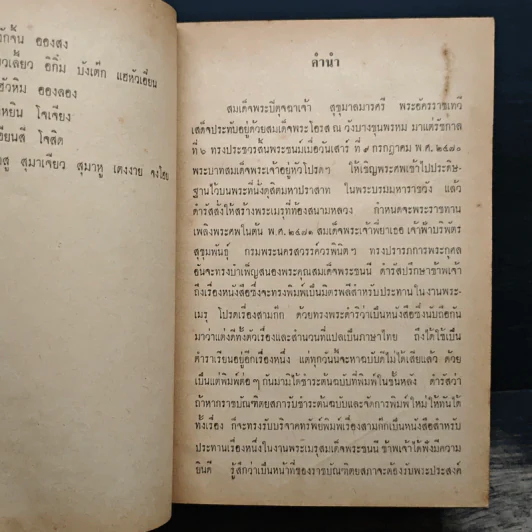 รักจั้น อองสง
อิกิ๋ม บังเต๊ก แฮหัวเอี๋ยน
ฮัวหิม อองลอง
หยิน โจเจียง
โจสิด
สุมาเจียว สุมาหู เตงงาย จงโฮย
คำนำ
สมเด็จพระปิตุจฉาเจ้า สุขุมาลมารศรี พระอัครราชเทวี
เสด็จประทับอยู่ด้วยสมเด็จพระโอรส ณ วังบางขุนพรหม มาแต่รัชกาล
ที่ ๖ ทรงประชวรสิ้นพระชนม์เมื่อวันเสาร์ ที่ ๙ กรกฎาคม พ.ศ. ๒๔๗๐
พระบาทสมเด็จพระเจ้าอยู่หัวโปรดฯ ให้เชิญพระศพเข้าไปประดิษ-
ฐานไว้บนพระที่นั่งดุสิตมหาปราสาท ในพระบรมมหาราชวัง แล้ว
ดำรัสสั่งให้สร้างพระเมรุที่ท้องสนามหลวง กำหนดจะพระราชทาน
เพลิงพระศพในต้น พ.ศ. ๒๔๗๑ สมเด็จพระเจ้าพี่ยาเธอ เจ้าฟ้าบริพัตร
สุขุมพันธุ์ กรมพระนครสวรรค์วรพินิตฯ ทรงปรารภการพระกุศล
อันจะทรงบำเพ็ญสนองพระคุณสมเด็จพระชนนี ดำรัสปรึกษาข้าพเจ้า
ถึงเรื่องหนังสือซึ่งจะทรงพิมพ์เป็นมิตรพลีสำหรับประทานในงานพระ-
เมรุ โปรดเรื่องสามก๊ก ด้วยทรงพระดำริว่าเป็นหนังสือซึ่งนับถือกัน
มาว่าแต่งดีทั้งตัวเรื่องและสำนวนที่แปลเป็นภาษาไทย ถึงได้ใช้เป็น
ตำราเรียนอยู่อีกเรื่องหนึ่ง แต่ทุกวันนี้จะหาฉบับดีไม่ได้เสียแล้ว ด้วย
เป็นแต่พิมพ์ต่อๆ กันมามิได้ชำระต้นฉบับที่พิมพ์ในชั้นหลัง ดำรัสว่า
ถ้าหากราชบัณฑิตยสภารับชำระต้นฉบับและจัดการพิมพ์ใหม่ให้ทันได้
ทั้งเรื่อง ก็จะทรงรับบริจาคทรัพย์พิมพ์เรื่องสามก๊กเป็นหนังสือสำหรับ
ประทานเรื่องหนึ่งในงานพระเมรุสมเด็จพระชนนี ข้าพเจ้าได้ฟังมีความ
ยินดี รู้สึกว่าเป็นหน้าที่ของราชบัณฑิตยสภาจะต้องรับพระประสงค์